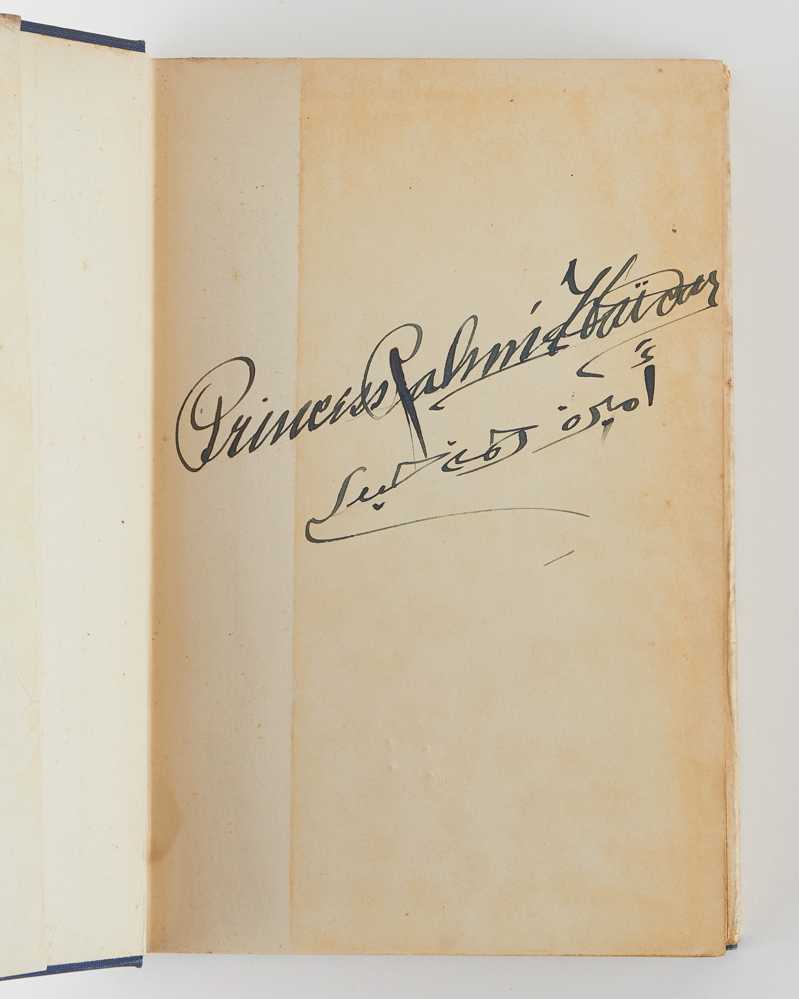 Princess Rahmé Haïdar
أميرة رحمة حيدر